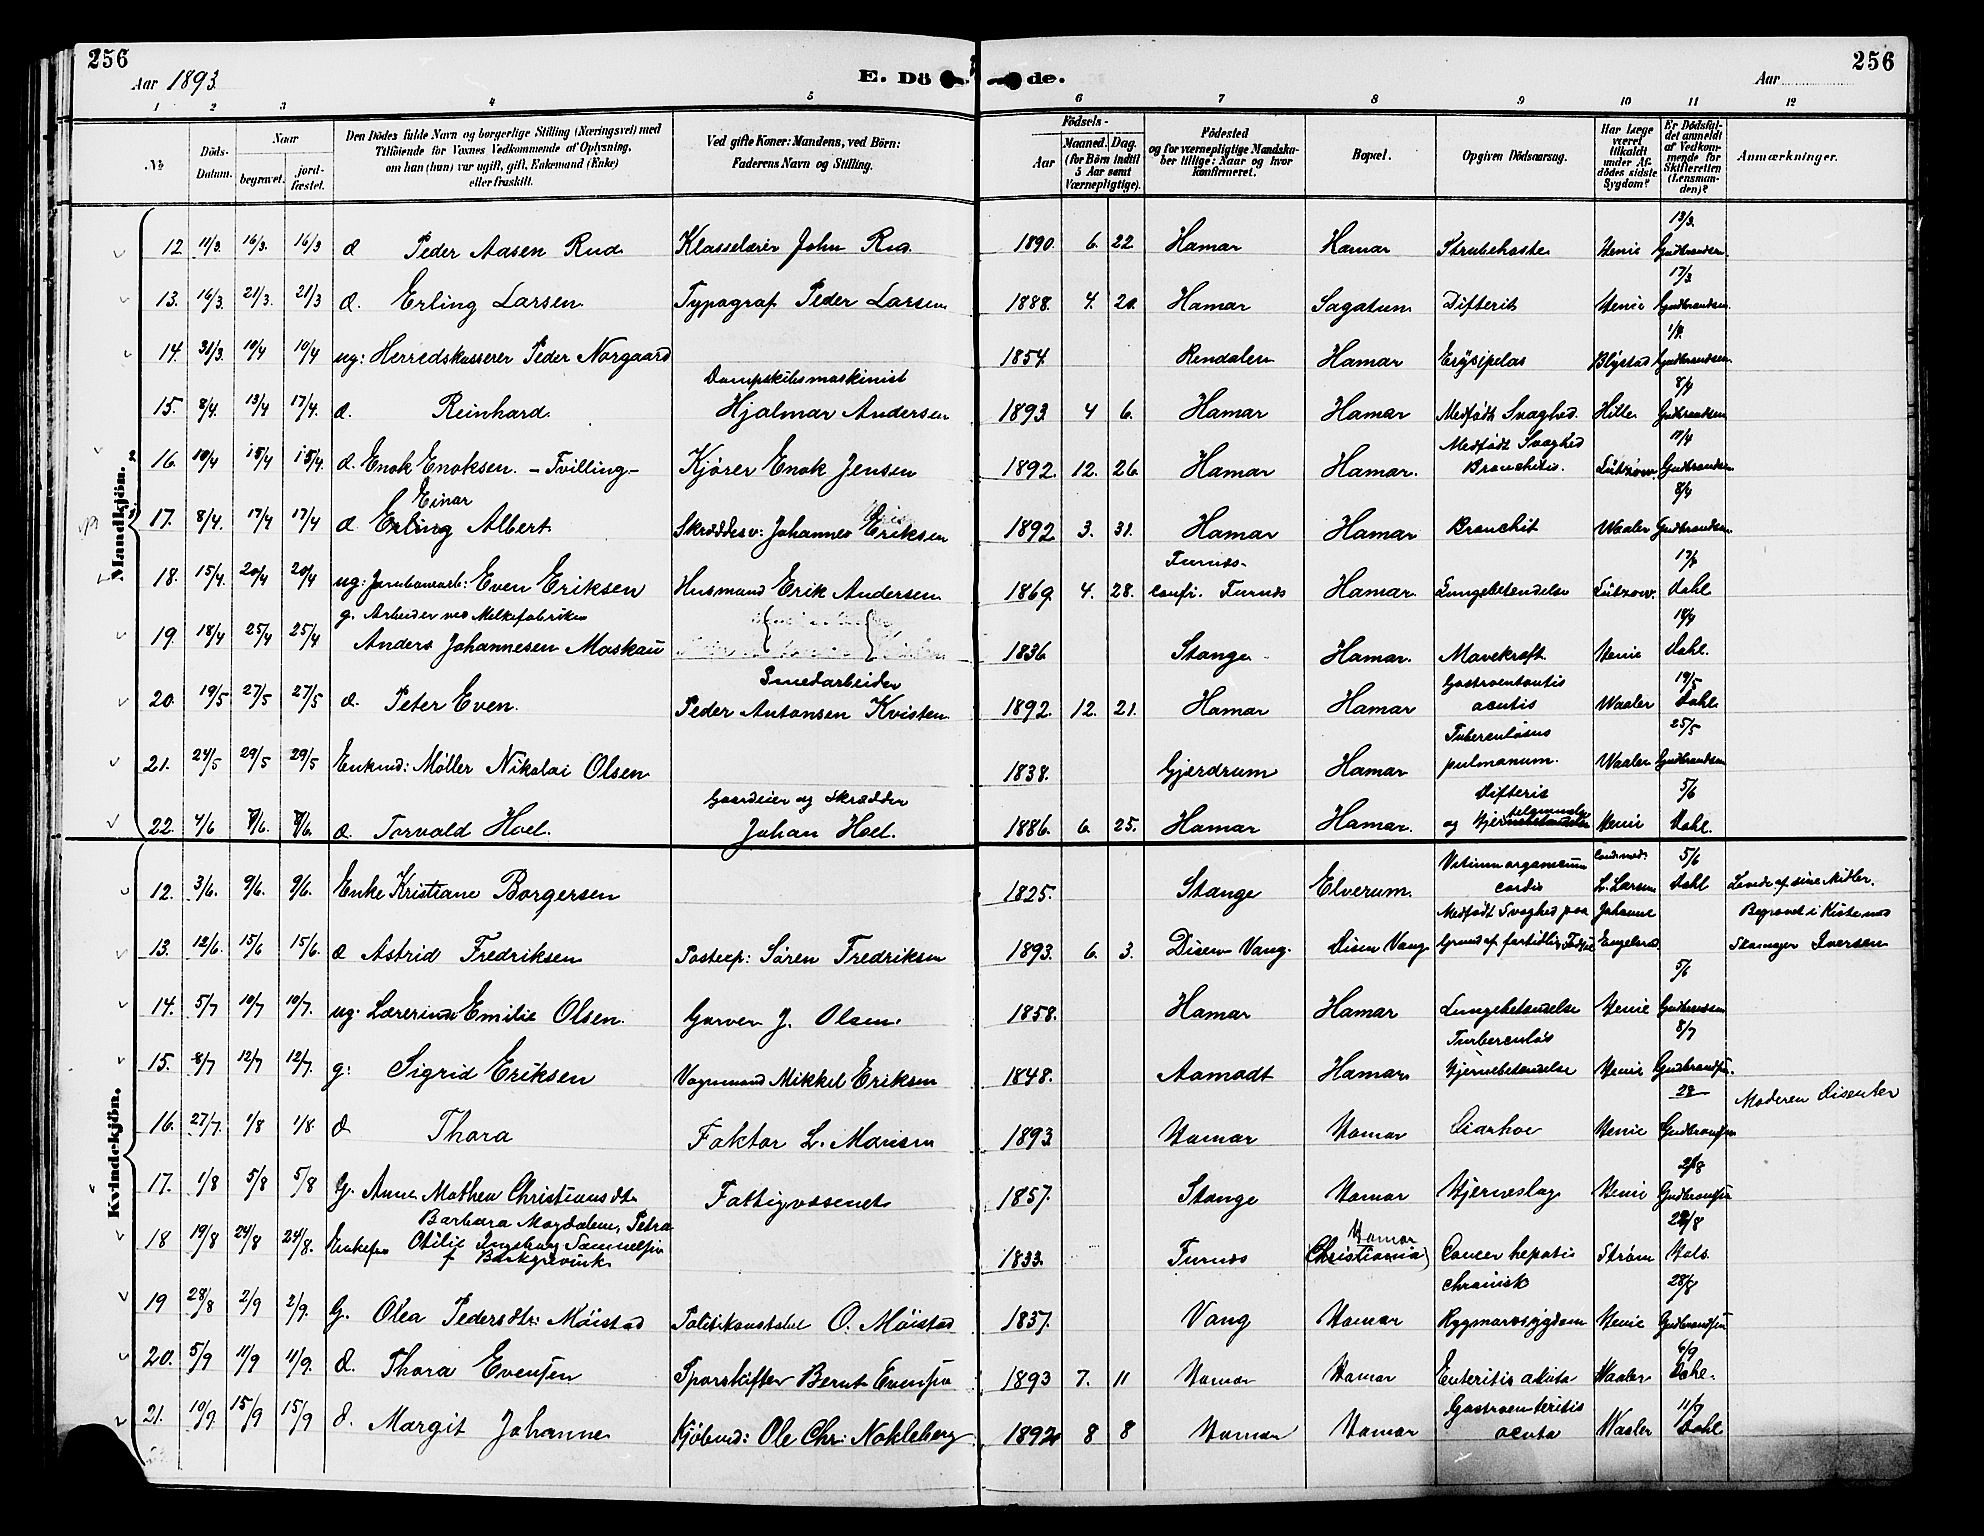 256
Aar 1893.
E. Dö de.
Aar
256
1 2 3 4 5 6 7 8 9 10 11 12
No
Döds-Datum.
Naar
begravet.
jord-fæstet.
Den Dödes fulde Navn og borgerlige Stilling (Næringsvei) med Tilföiende for Voxnes Vedkommende af Oplysning, om han (hun) var ugift, gift, Enkemand (Enke) eller fraskilt.
Ved gifte Koner: Mandens, ved Börn: Faderens Navn og Stilling.
Födsels-
Aar
Maaned. Dag. (for Börn indtil 5 Aar samt Værnepligtige).
Födested og for værnepligtige Mandskaber tillige: Naar og hvor konfirmeret.
Bopæl.
Opgiven Dödsaarsag.
Har Læge været tilkaldt under Afdödes sidste Sygdom?
Er Dödsfaldet anmeldt af Vedkommende for Skifteretten (Lensmanden)?
Anmærkninger.
Mandkjön.
12 11/3. 16/3. 16/3 d Peder Aasen Rud Klasselærer John Rud. 1890. 6. 22 Hamar Hamar Strubehoste Henie 13/3. Gudbrandsen.
13. 16/3. 21/3. 21/3 d. Erling Larsen Typograf Peder Larsen 1888. 4. 20. Hamar Sagatun Difterit Henie 17/3 Gudbrandsen
14. 31/3. 10/4 10/4 ug: Herredskasserer Peder Norgaard 1854 Rendalen Hamar Erysipelas Blystad Gudbrandsen
15. 8/4. 13/4 17/4. d. Reinhard. Dampskibsmaskinist Hjalmar Andersen 1893 4 6. Hamar Hamar Medfödt Svaghed. Hille 8/4 Gudbrandsen
16. 10/4 15/4 15/4. d. Enok Enoksen. - Tvilling - Kjörer Enok Jensen 1892. 12. 26. Hamar Hamar. Medfödt Svaghed Bronchitis. Lützow. 11/4 Gudbrandsen
17. 8/4. 17/4 17/4 d Einar Erling Albert Skræddersv: Johannes Eriksen 1892 3. 31. Hamar Hamar Bronchit Waaler 8/4 Gudbrandsen
18. 15/4. 20/4 20/4 ug: Jernbanearb: Even Eriksen Husmand Erik Andersen 1869. 4. 28. Furnes. confi. Furnes Hamar Lungebetendelse Lützow. Dahl
19. 18/4 25/4 25/4 g. Arbeider ved Melkefabriken Anders Johannesen Moskau 1836 Stange Hamar. Mavekræft Henie 18/4 Dahl.
20. 19/5 27/5 27/5 d. Peter Even. Smedarbeider Peder Antonsen Kvisten 1892. 12. 21. Hamar Hamar Gastroentoritis acutis Waaler 19/5 Dahl
21. 24/5 29/5 29/5 Enkmd: Møller Nikolai Olsen 1838. Gjerdrum Hamar Tuberculösus pulmonum. Waaler 25/5 Gudbrandsen
22. 4/6 8/6. 8/6. d Torvald Hoel. Gaardeier og Skrædder Johan Hoel. 1886. 6. 25. Hamar Hamar. Difteris og Henie 5/6 Dahl.
Kvindekjön.
12. 3/6. 9/6. 9/6. Enke Kristiane Borgersen 1825. Stange Elverum. Vitium organicum cordis L. Larsen 5/6 Dahl Levde af sine Midler.
13. 12/6. 15/6 15/6. d Astrid Fredriksen Postexp: Sören Fredriksen 1893. 6. 3. Disen Vang. Disen Vang Medfödt Svaghed paa Grund af fortidlig Födsel Johanne Engelund Begravet i Kiste med Skomager Iversen
14. 5/7 10/7 10/7. ug. Lærerinde Emilie Olsen. Garver J. Olsen. 1858. Hamar Hamar Lungebetændelse Henie 5/6 Gudbrandsen
15. 8/7 12/7 12/7. g: Sigrid Eriksen Vognmand Mikkel Eriksen 1848. Aamodt Hamar Turberculös Hjernebetændelse Henie 8/7 Gudbrandsen.
16. 27/7. 1/8 1/8. d Thora Faktor L. 1893 Hamar Hamar Diarhoe Henie 28 Gudbrandsen Moderen Disenter
17. 1/8 5/8 5/8 G. Anne Mathea Christiansdtr Fattigvæsenet 1857. Stange Hamar Hjerneslag Henie Gudbrandsen
18 19/8 24/8 24/8. Enkefru Barbara Magdalene, Petra Otilie Ingeborg Samuelsen f Barkgrevink 1833. Furnes Hamar (Christiania) Cancer hepatis Ström Hals
19 28/8 2/9 2/9. G. Olea Pedersdtr: Möistad Politikonstabel O. Möistad 1837. Vang Hamar chronisk Rygmarvsygdom Henie 28/8 Gudbrandsen
20. 5/9 11/9 11/9. d. Thora Evensen Sporskifter Bernt Evensen 1893 7. 11 Hamar Hamar Enteritis acuta Waaler 6/9 Dahl.
21. 10/9 15/9 15/9 d. Margit Johanne Kjöbmd: Ole Chr: Nokleberg 1892 8 8 Hamar Hamar Gastroenteritis acuta Waaler 11/9 Dahl